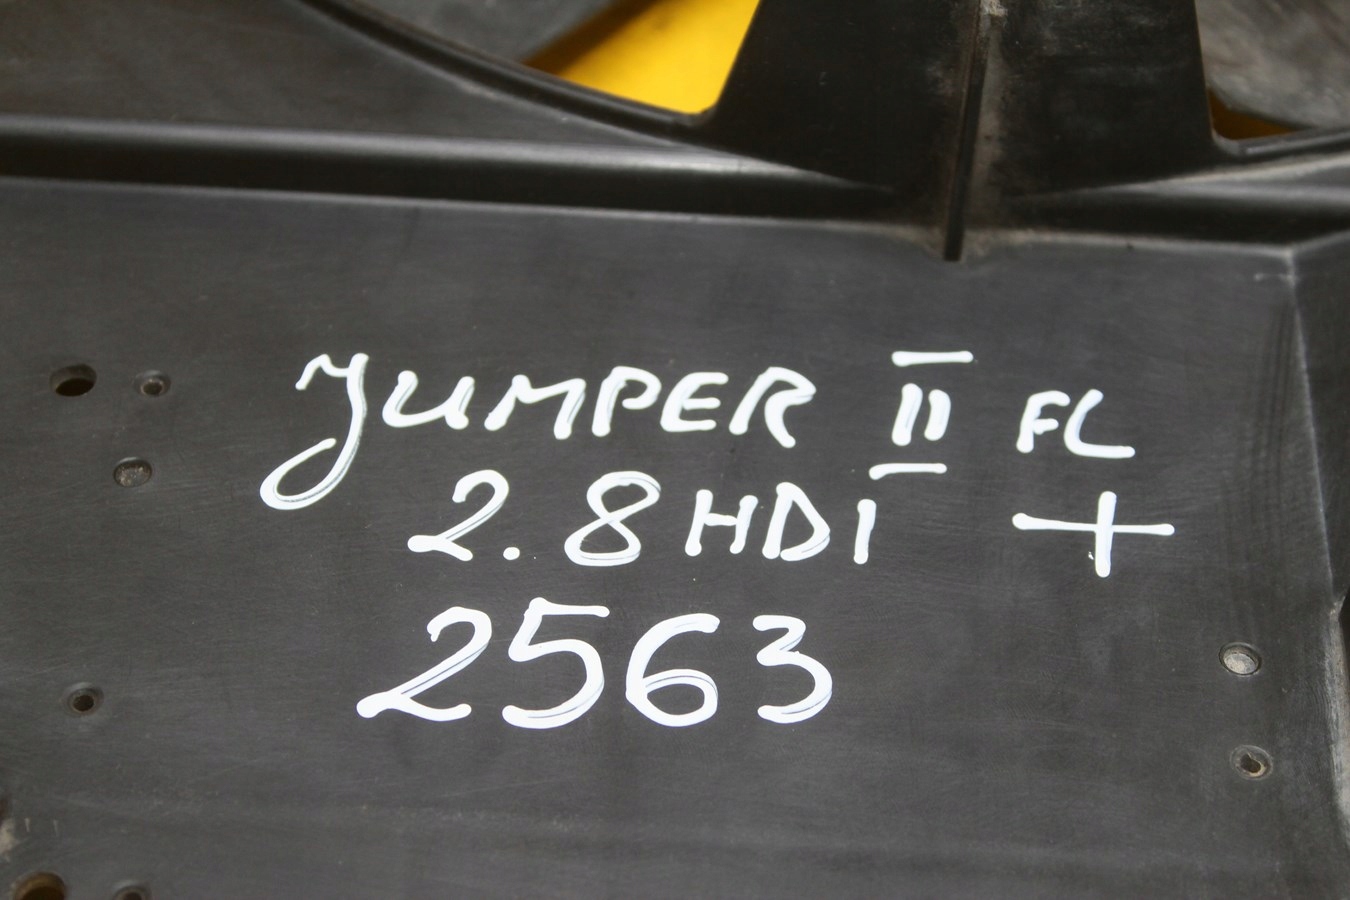 JUMPER II FL
2.8 HDI +
2563